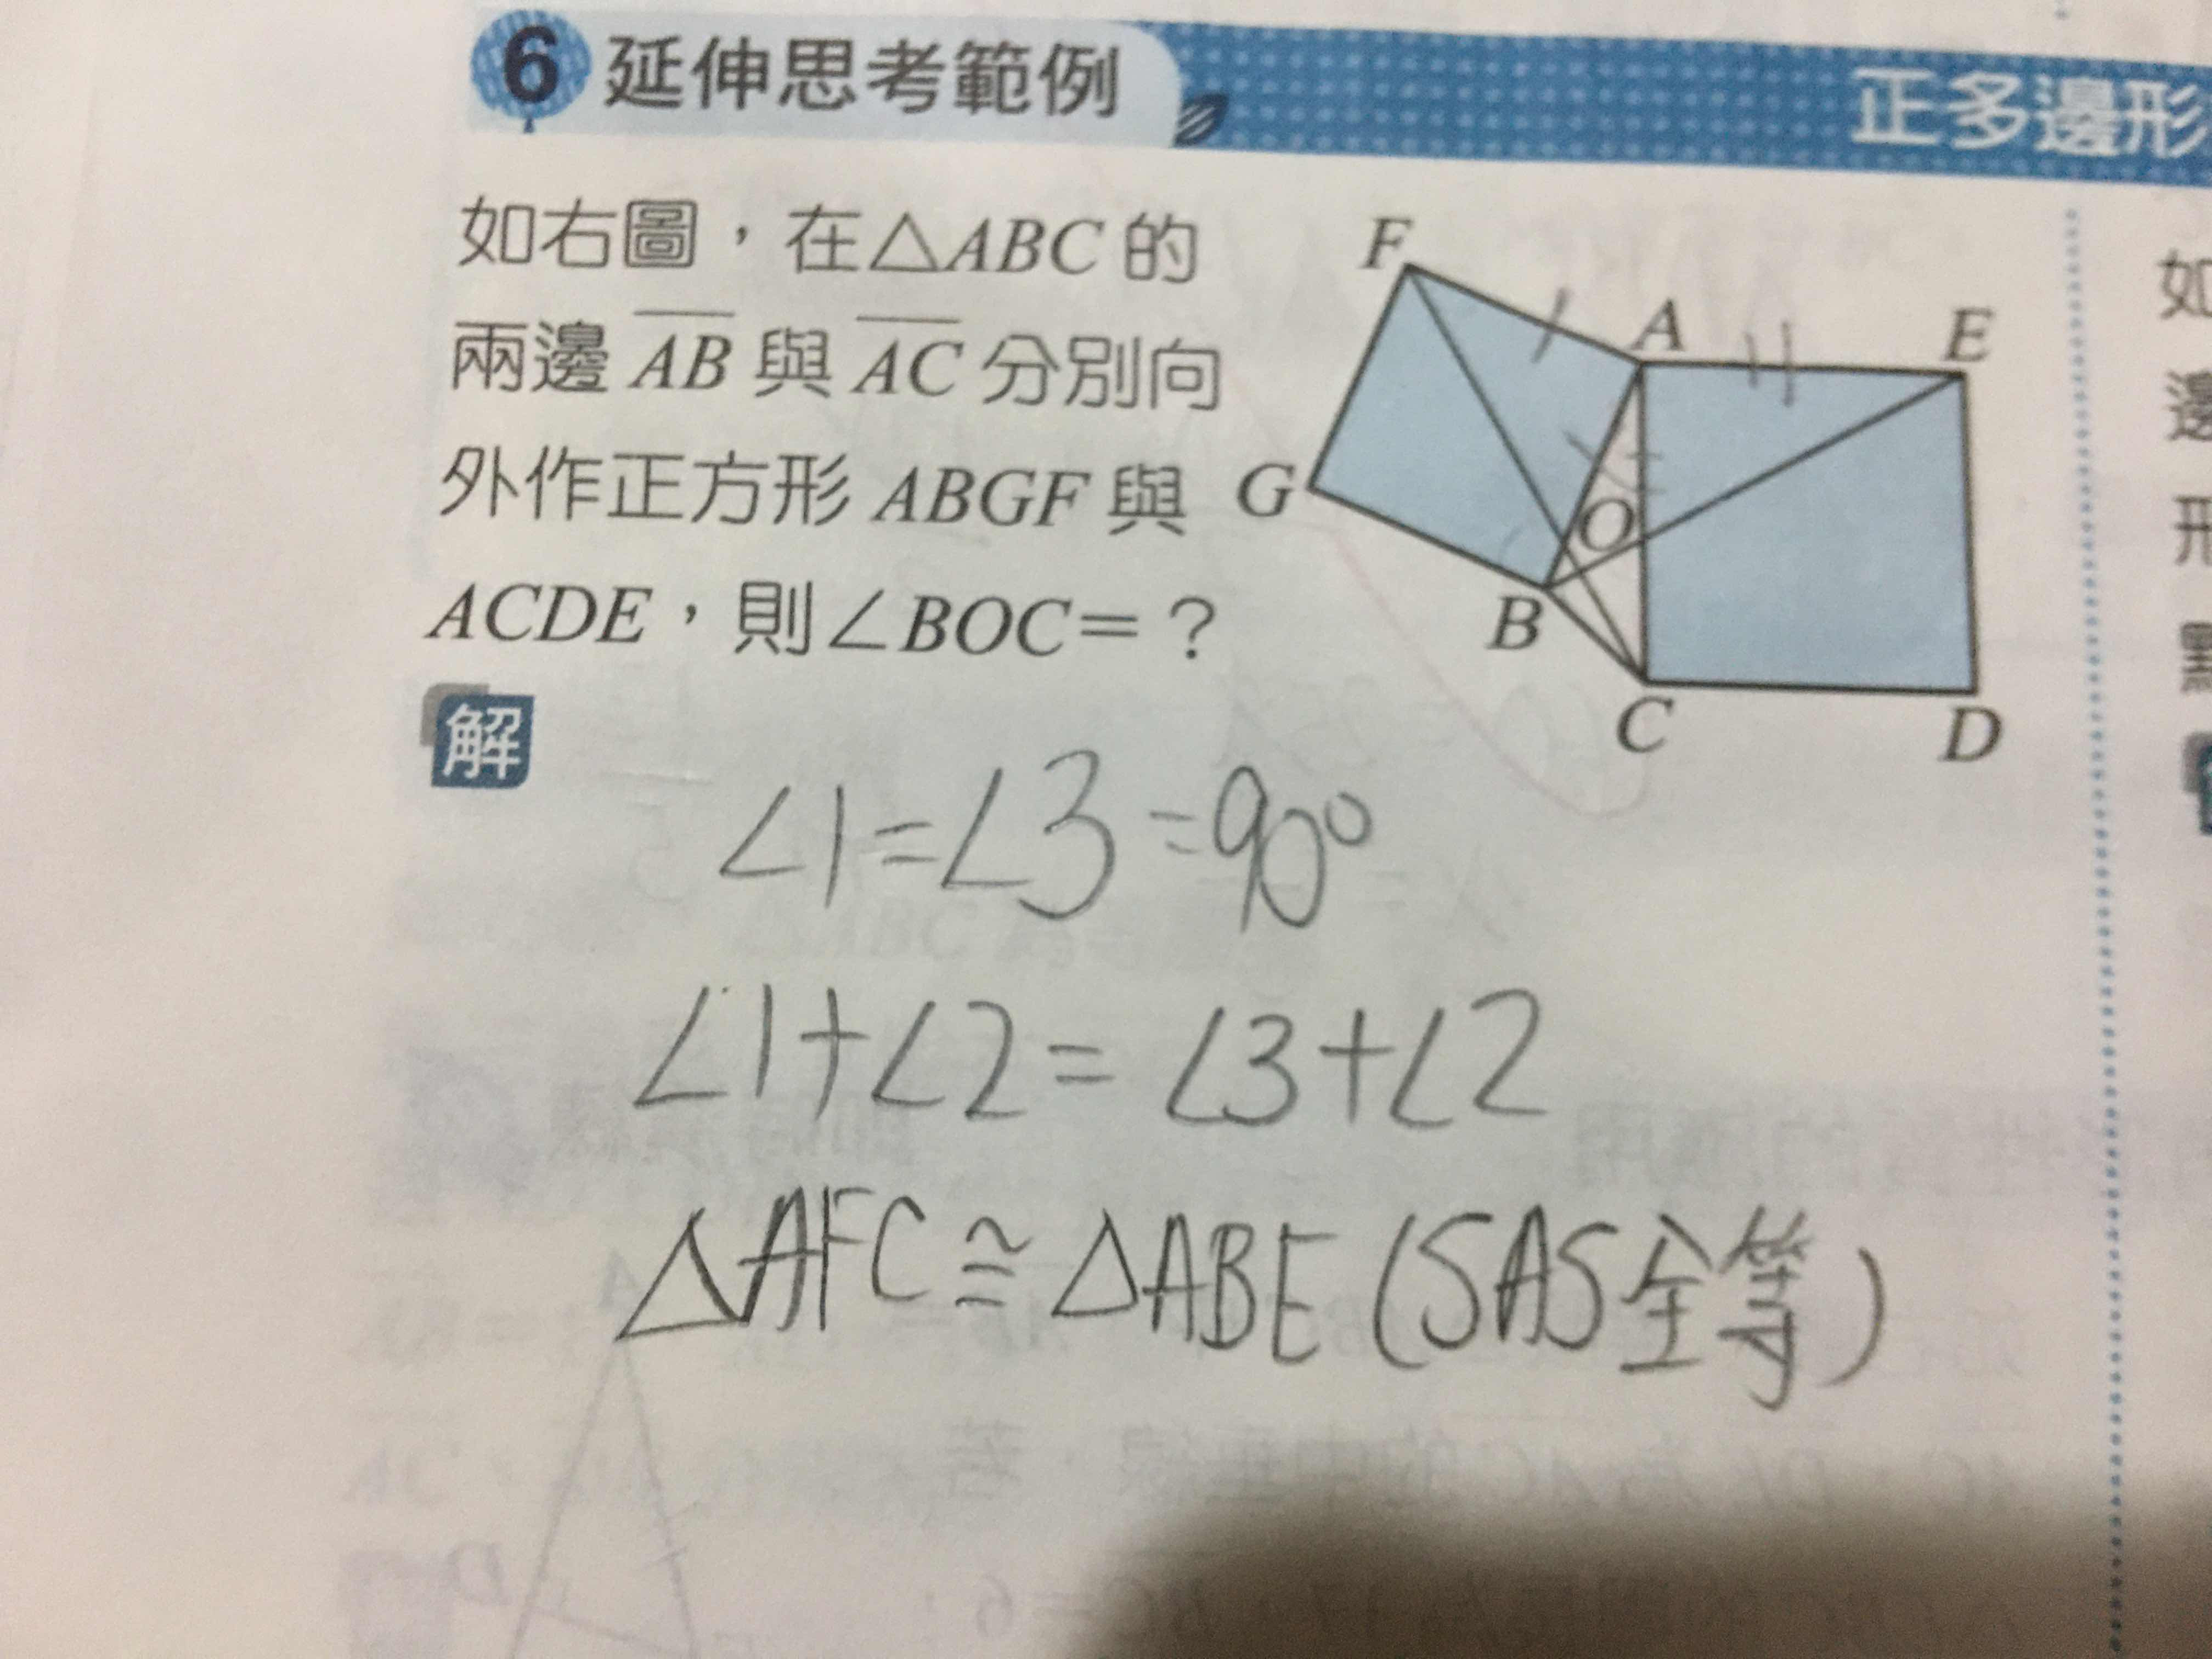 6 延伸思考範例
正多邊形
如右圖，在△ABC的
兩邊 AB 與 AC 分別向
外作正方形 ABGF 與
ACDE，則∠BOC=？
F
A
E
G
O
B
C
D
解
∠1=∠3=90°
∠1+∠2=∠3+∠2
△AFC≅△ABE(SAS全等)
如
邊
形